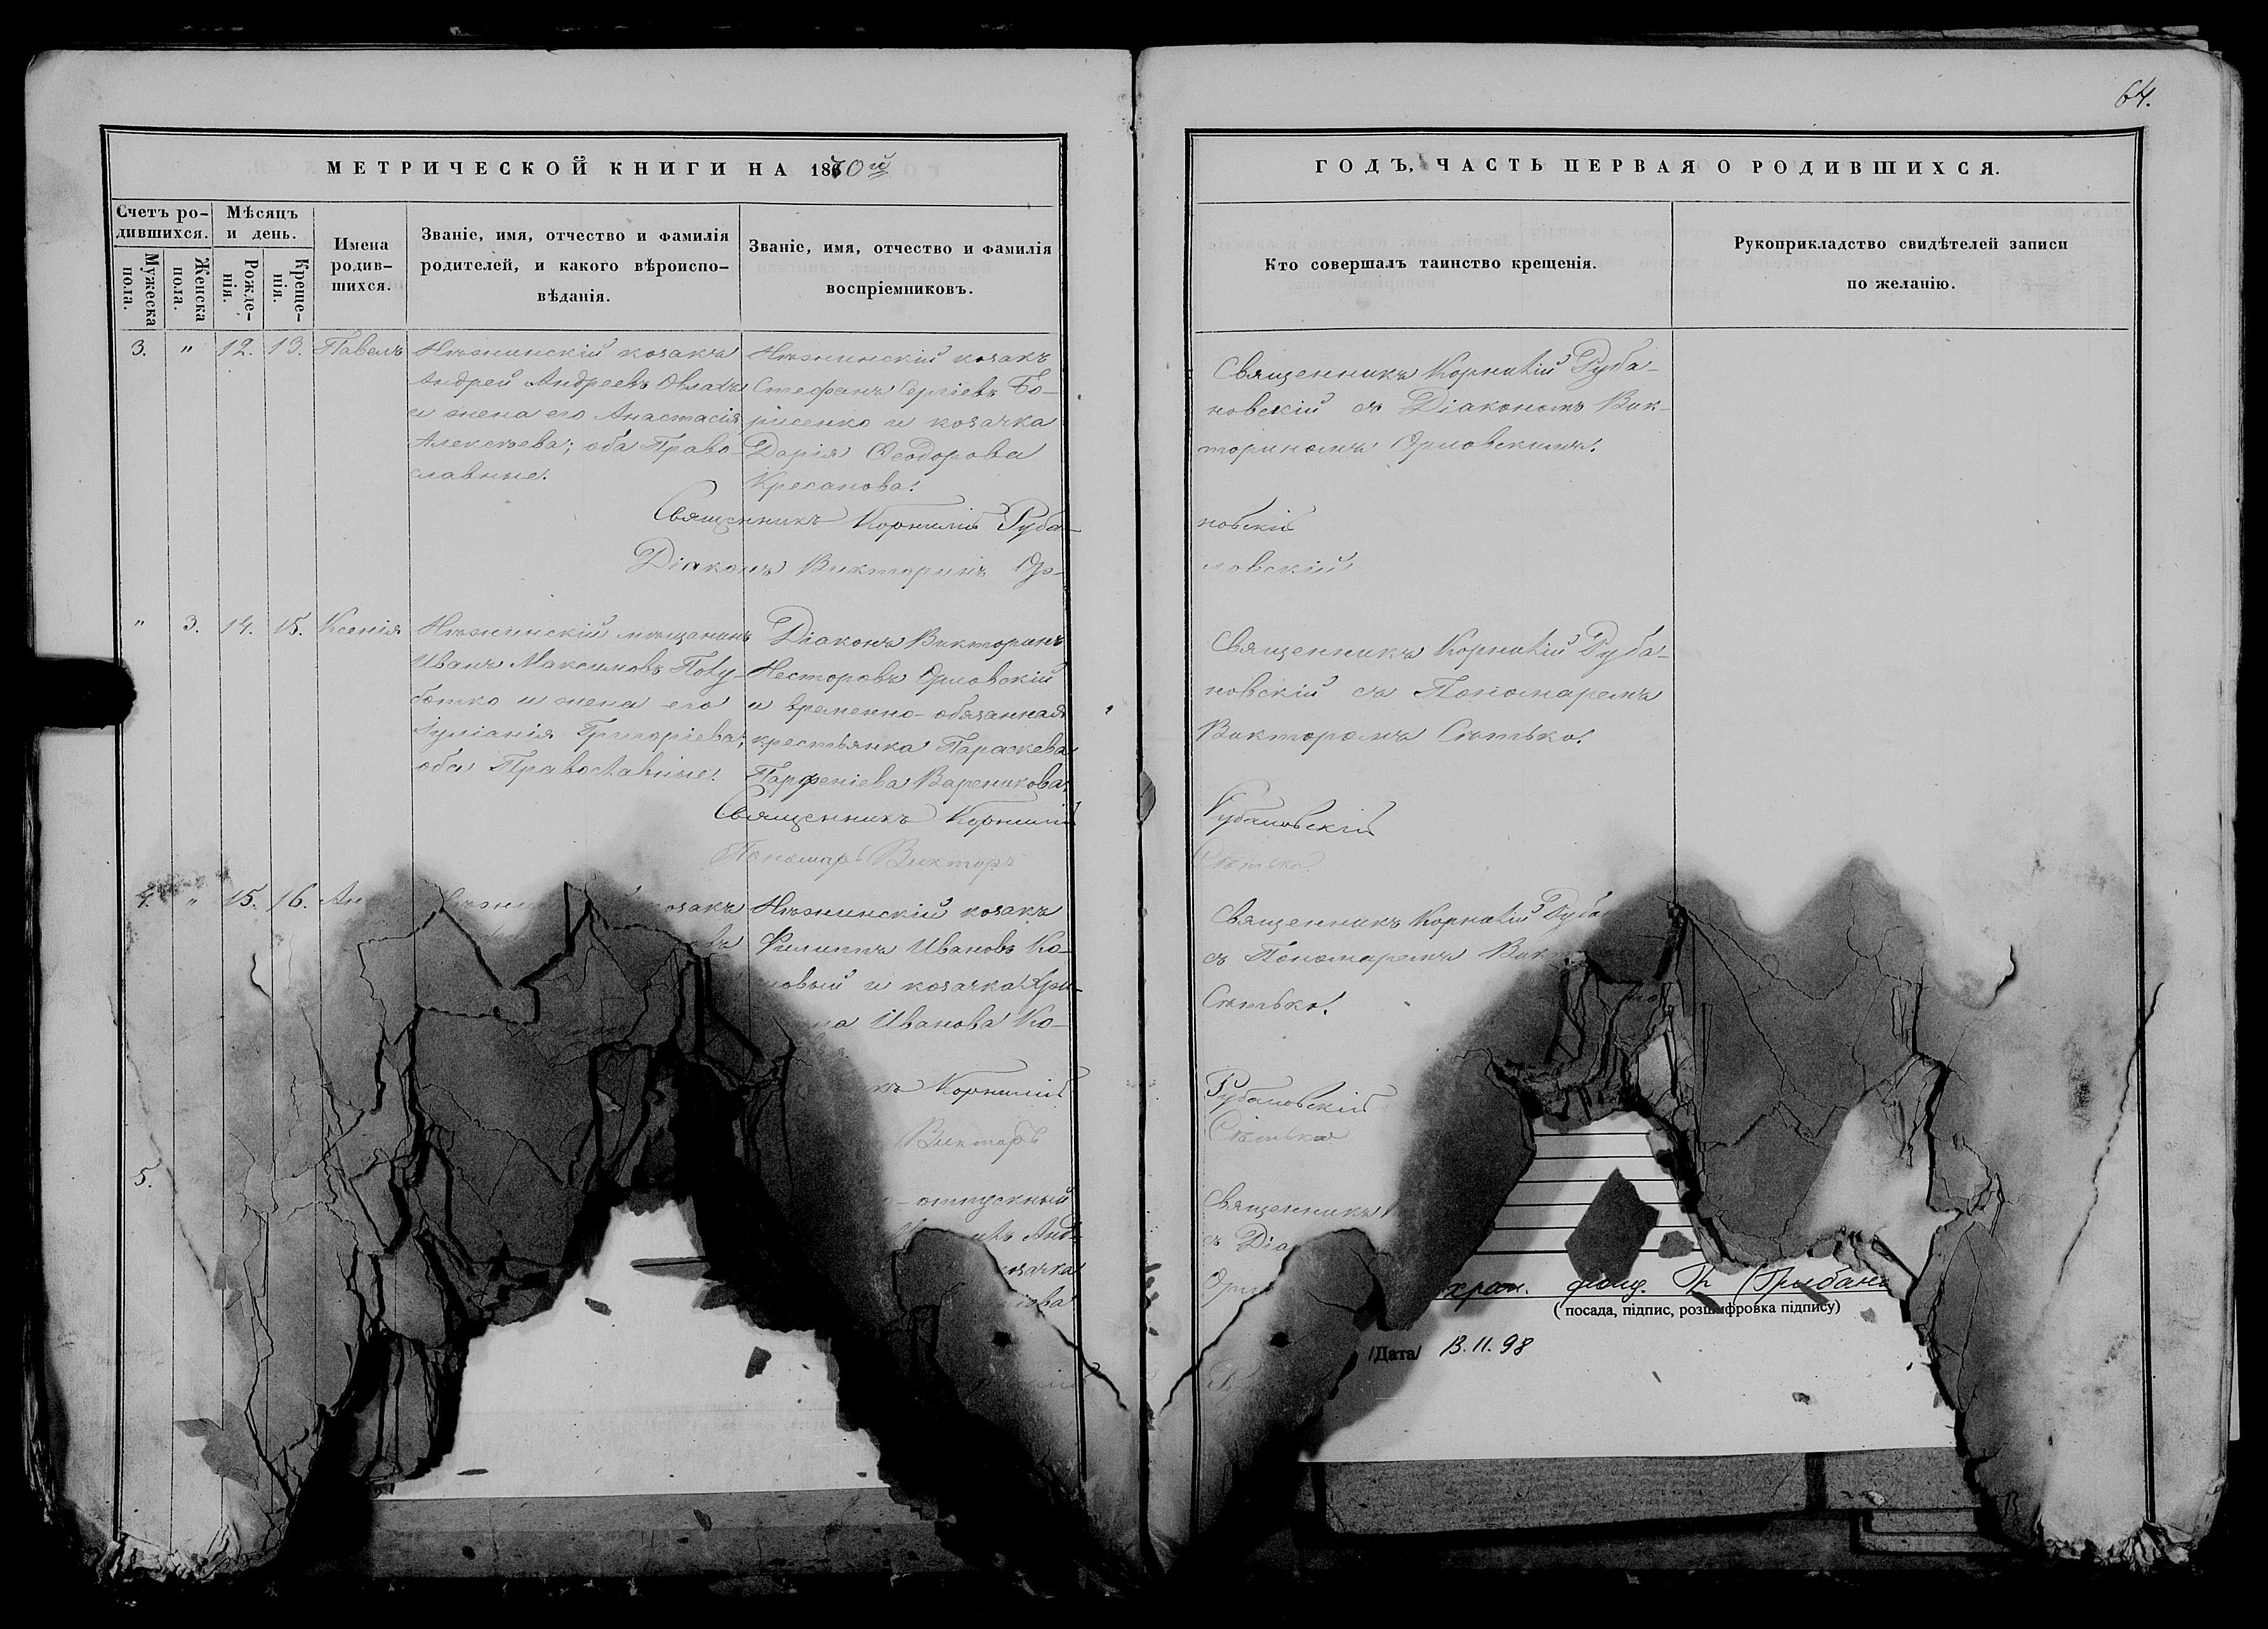 64.
МЕТРИЧЕСКОЙ КНИГИ НА 1870й
ГОДЪ, ЧАСТЬ ПЕРВАЯ О РОДИВШИХСЯ.
Счетъ ро-
дившихся.
Мужеска
пола.
Женска
пола.
Мѣсяцъ
и день.
Рожде-
нія.
Креще-
нія.
Имена
родив-
шихся.
Званіе, имя, отчество и фамилія
родителей, и какого вѣроиспо-
вѣданія.
Званіе, имя, отчество и фамилія
воспріемниковъ.
Кто совершалъ таинство крещенія.
Рукоприкладство свидѣтелей записи
по желанію.
3. " 12. 13. Павелъ
Нѣжинскій козакъ
Андрей Андреевъ
и жена его Анастасія
Алексѣева; оба Право-
славные.
Нѣжинскій козакъ
Стефанъ Сергіевъ Бо-
рисенко и козачка
Дарія Ѳеодорова
Кресанова.
Священникъ Корнилій Руба-
новскій съ Діакономъ Вик-
ториномъ Орловскимъ.
Священникъ Корнилій Руба-
новскій
Діаконъ Викторинъ Ор-
ловскій
" 3. 14. 15. Ксенія
Нѣжинскій мѣщанинъ
Иванъ Максимовъ Полу-
ботко и жена его
Іуліанія Григоріева;
оба Православные.
Діаконъ Викторинъ
Несторовъ Орловскій
и временно-обязанная
крестьянка Параскева
Парфеніева Вареникова.
Священникъ Корнилій Руба-
новскій съ Пономаремъ
Викторомъ Сѣтько.
Священникъ Корнилій
Рубановскій
Пономарь Викторъ
Сѣтько
4. " 15. 16. Ан
козакъ
въ
Нѣжинскій козакъ
Филиппъ Ивановъ Ко-
новый и козачка Хри-
на Иванова Ко-
Священникъ Корнилій Руба
съ Пономаремъ Вик
Сѣтько.
къ Корнилій
Рубановскій
Викторъ
Сѣтько
5.
о-отпускный
Анд-
козачка
Священникъ
съ Діа
хран. фонд.
( посада, підпис, розшифровка підпису)
/Дата/ 13.11.98